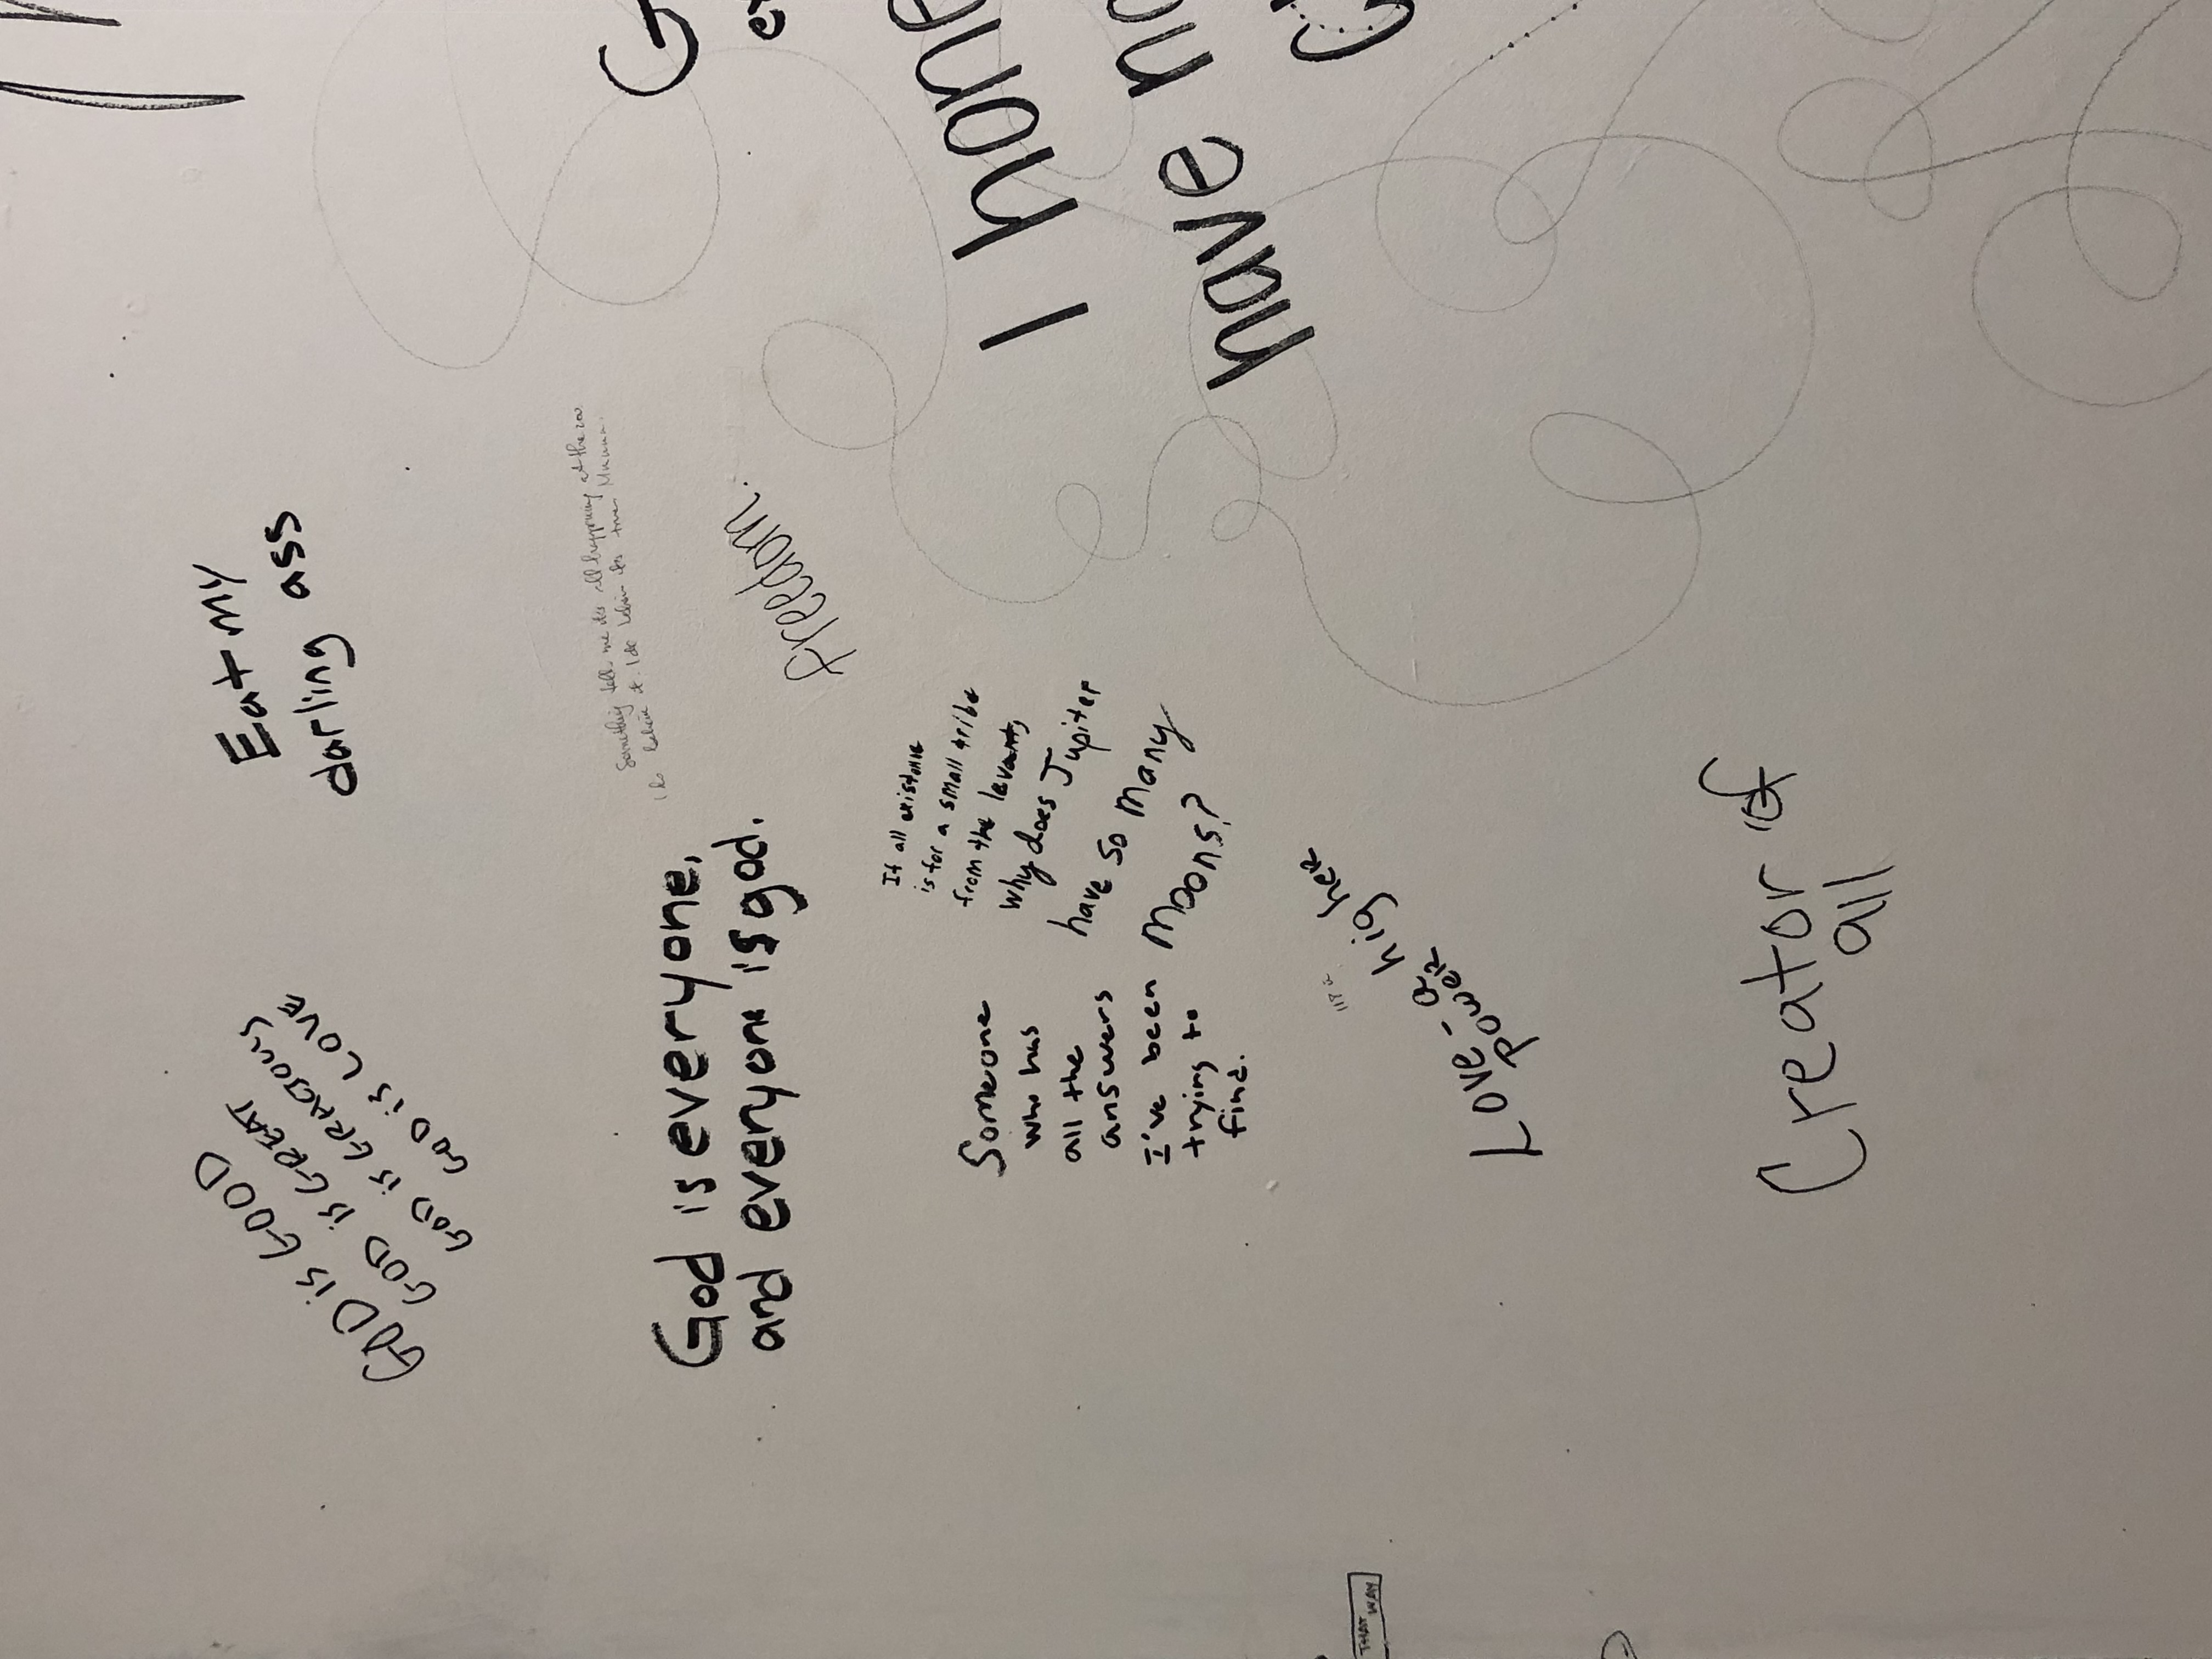 Eat my
darling ass
GOD is GOOD
GOD is GREAT
GOD is GRACIOUS
GOD is LOVE
Something tells me it's all happening at the zoo.
I do believe it. I do believe it's true Mmmm.
freedom.
God is everyone,
and everyone is god.
I hone
have no
If all existence
is for a small tribe
from the levant,
why does Jupiter
have so many
moons?
Someone
who has
all the
answers
I've been
trying to
find.
Love - a higher
power
Creator of
all
THAT WAY